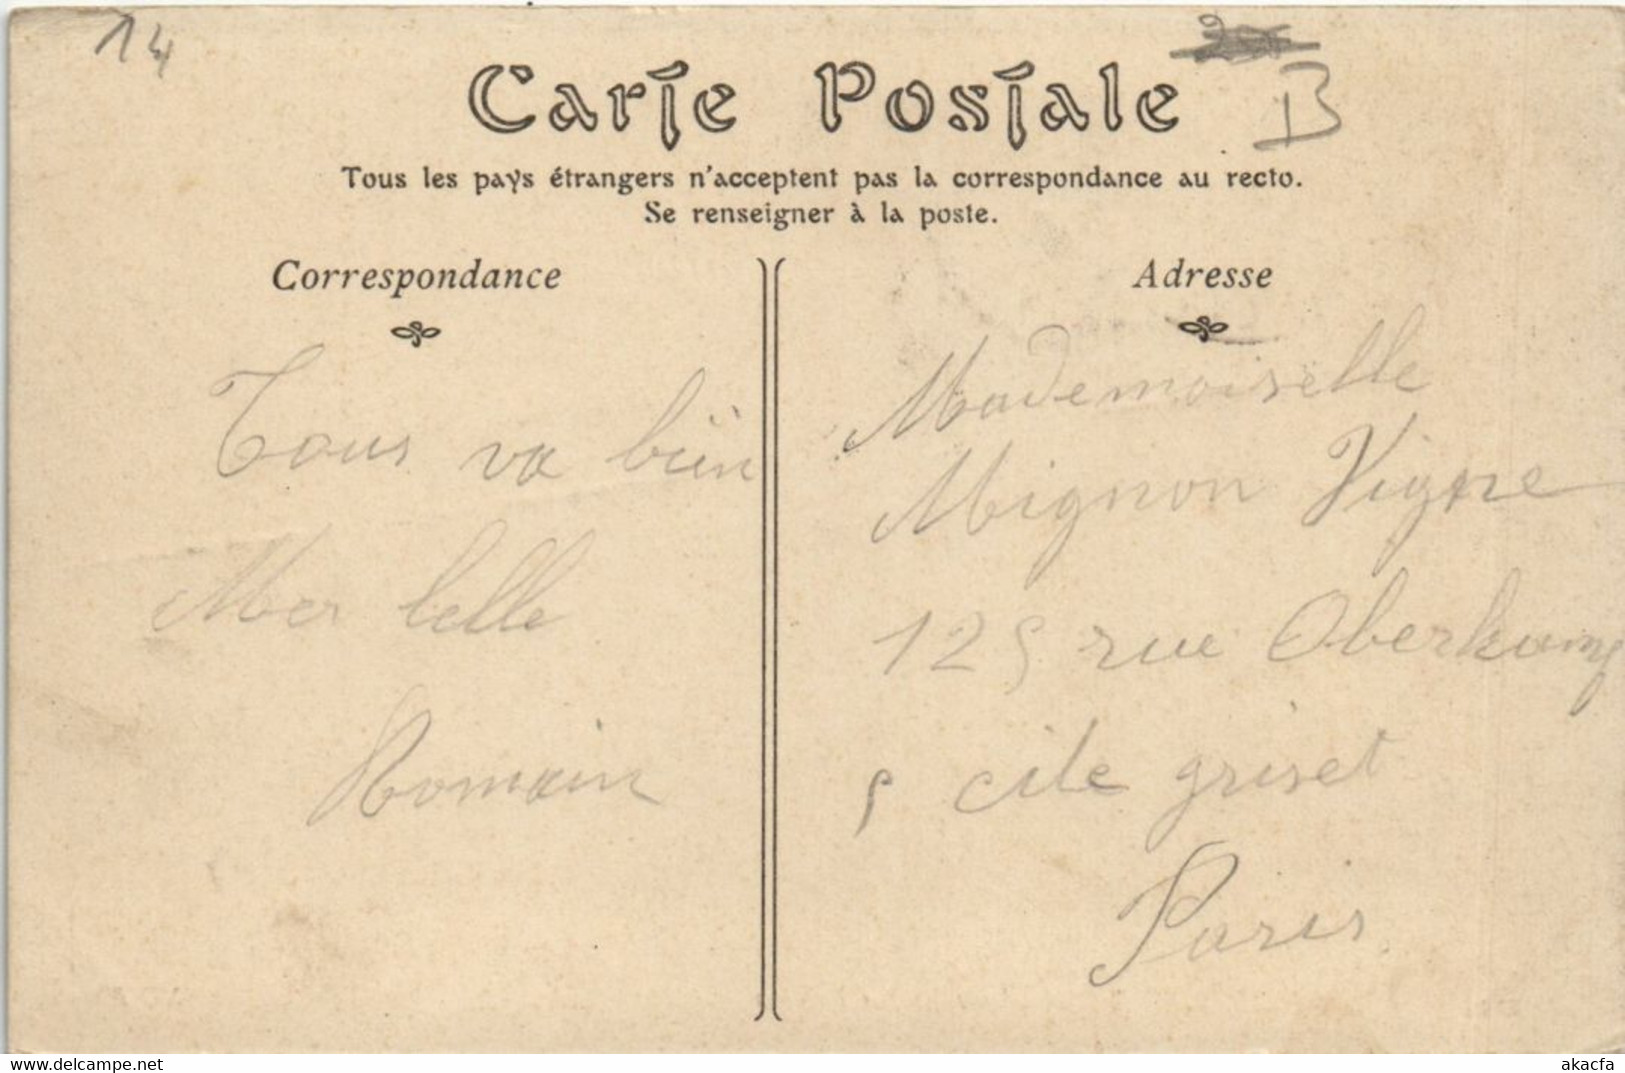 14
B
Carte Postale
Tous les pays étrangers n'acceptent pas la correspondance au recto.
Se renseigner à la poste.
Correspondance
Tous va bien
Mer belle
Romain
Adresse
Mademoiselle
Mignon Vigne
125 rue Oberkamp
5 cite griset
Paris
www.delcampe.net
akacfa